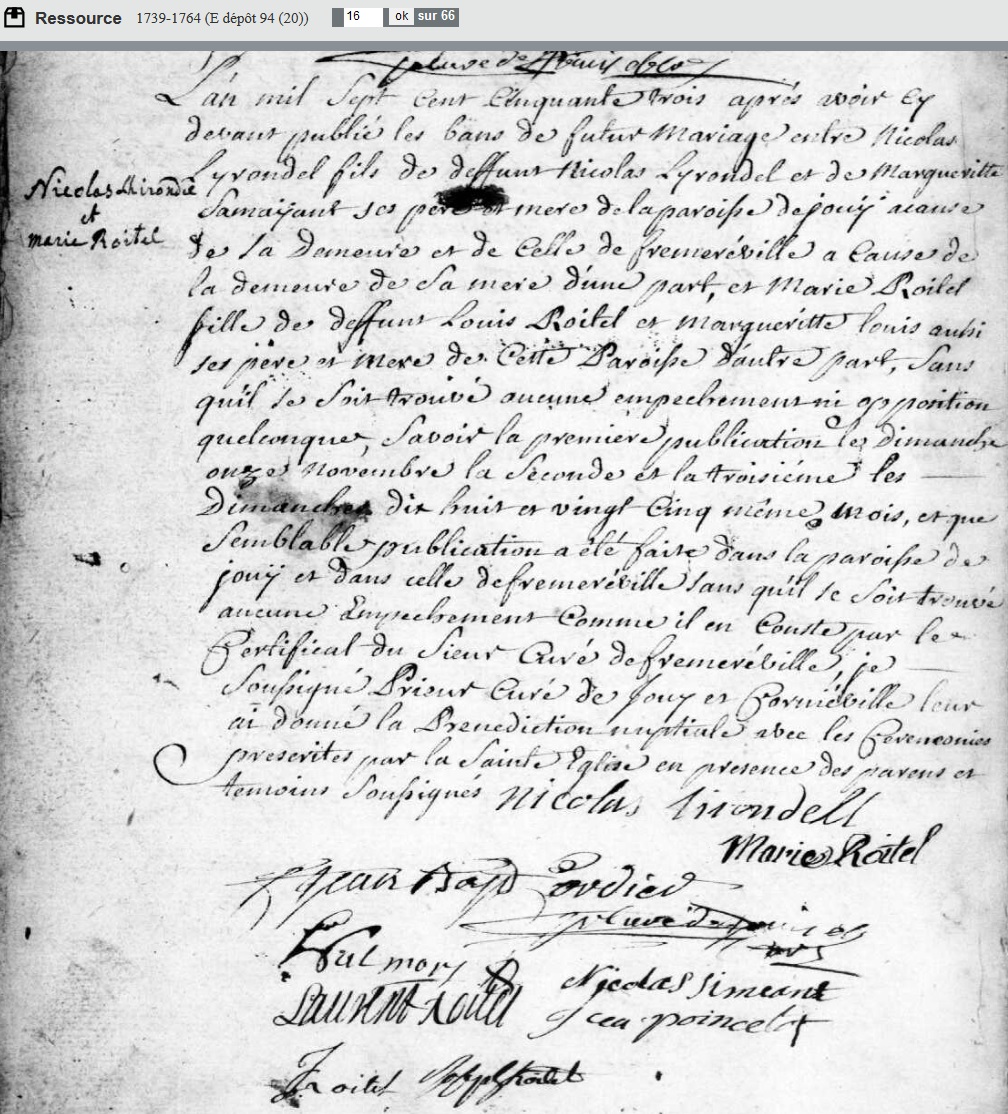 Ressource 1739-1764 (E dépôt 94 (20)) 16 ok sur 66
L'an mil Sept Cent Cinquante trois aprés avoir Cy
devant publié les bans de futur Mariage entre Nicolas
Lyrondel fils de deffunt Nicolas Lyrondel et de Margueritte
Nicolas Lhirondie
et
marie Roitel
Samajant ses pere et mere de la paroisse de joüy acause
de sa Demeure et de Celle de fremeréville a Cause de
la demeure de Sa mere d'une part, et Marie Roitel
fille de deffunt Louis Roitel et Margueritte louis aussi
ses père et Mere de Cette Paroisse d'autre part, Sans
quil se Soit trouvé aucune empechement ni opposition
quelconque, Savoir la premiere publication le Dimanche
onze Novembre la Seconde et la troisiéme les
Dimanches dix huit et vingt Cinq même Mois, et que
Semblable publication a été faite dans la paroisse de
joüÿ et dans celle de fremeréville sans qu'il se Soit trouvé
aucune Empechement Comme il en Conste par le
Certificat du Sieur Curé de fremeréville, je
Soussigné Prieur Curé de Jouy et Corniéville leur
ai donné la Benediction nuptiale avec les Ceremonies
prescrites par la Sainte Eglise en presence des parens et
temoins Soussignés Nicolas lirondell
Marie Roitel
Jean Bapt Cordier
Nicolas simeant
Laurent Roitel
poincelot
Roitel Joseph Roitel